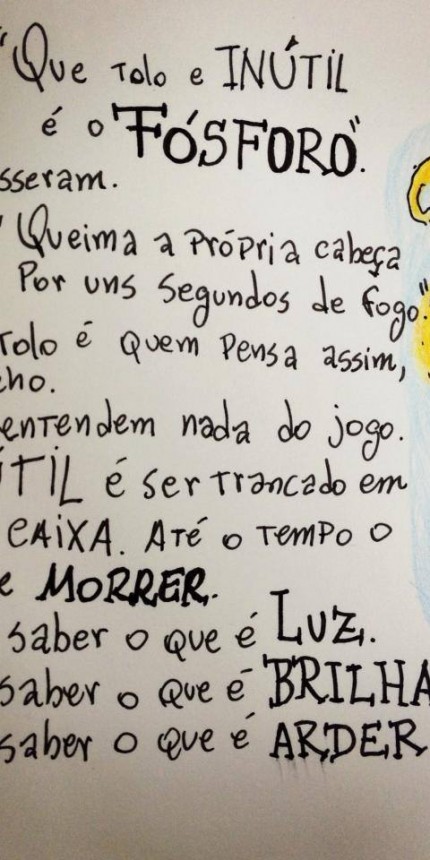 "Que Tolo e INÚTIL
é o "FÓSFORO".
sseram.
"Queima a Própria cabeça
Por uns segundos de fogo."
Tolo é quem pensa assim,
cho.
entendem nada do jogo.
ÚTIL é ser trancado em
CAIXA. ATÉ o TEMPO o
e MORRER.
saber o que é LUZ.
saber o que é BRILHA
saber o que é ARDER